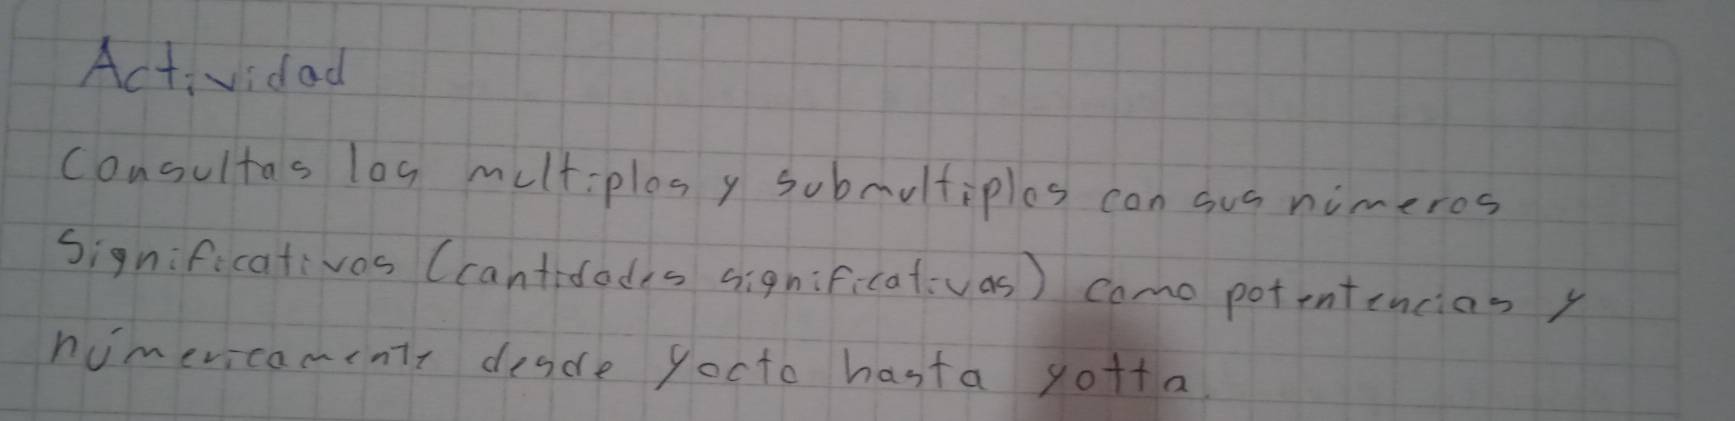 Actividad
Consultas los multiplos y submultiplos con sus números
significativos (cantidades significativas) como potentencias y
númericamente desde yocto hasta yotta.